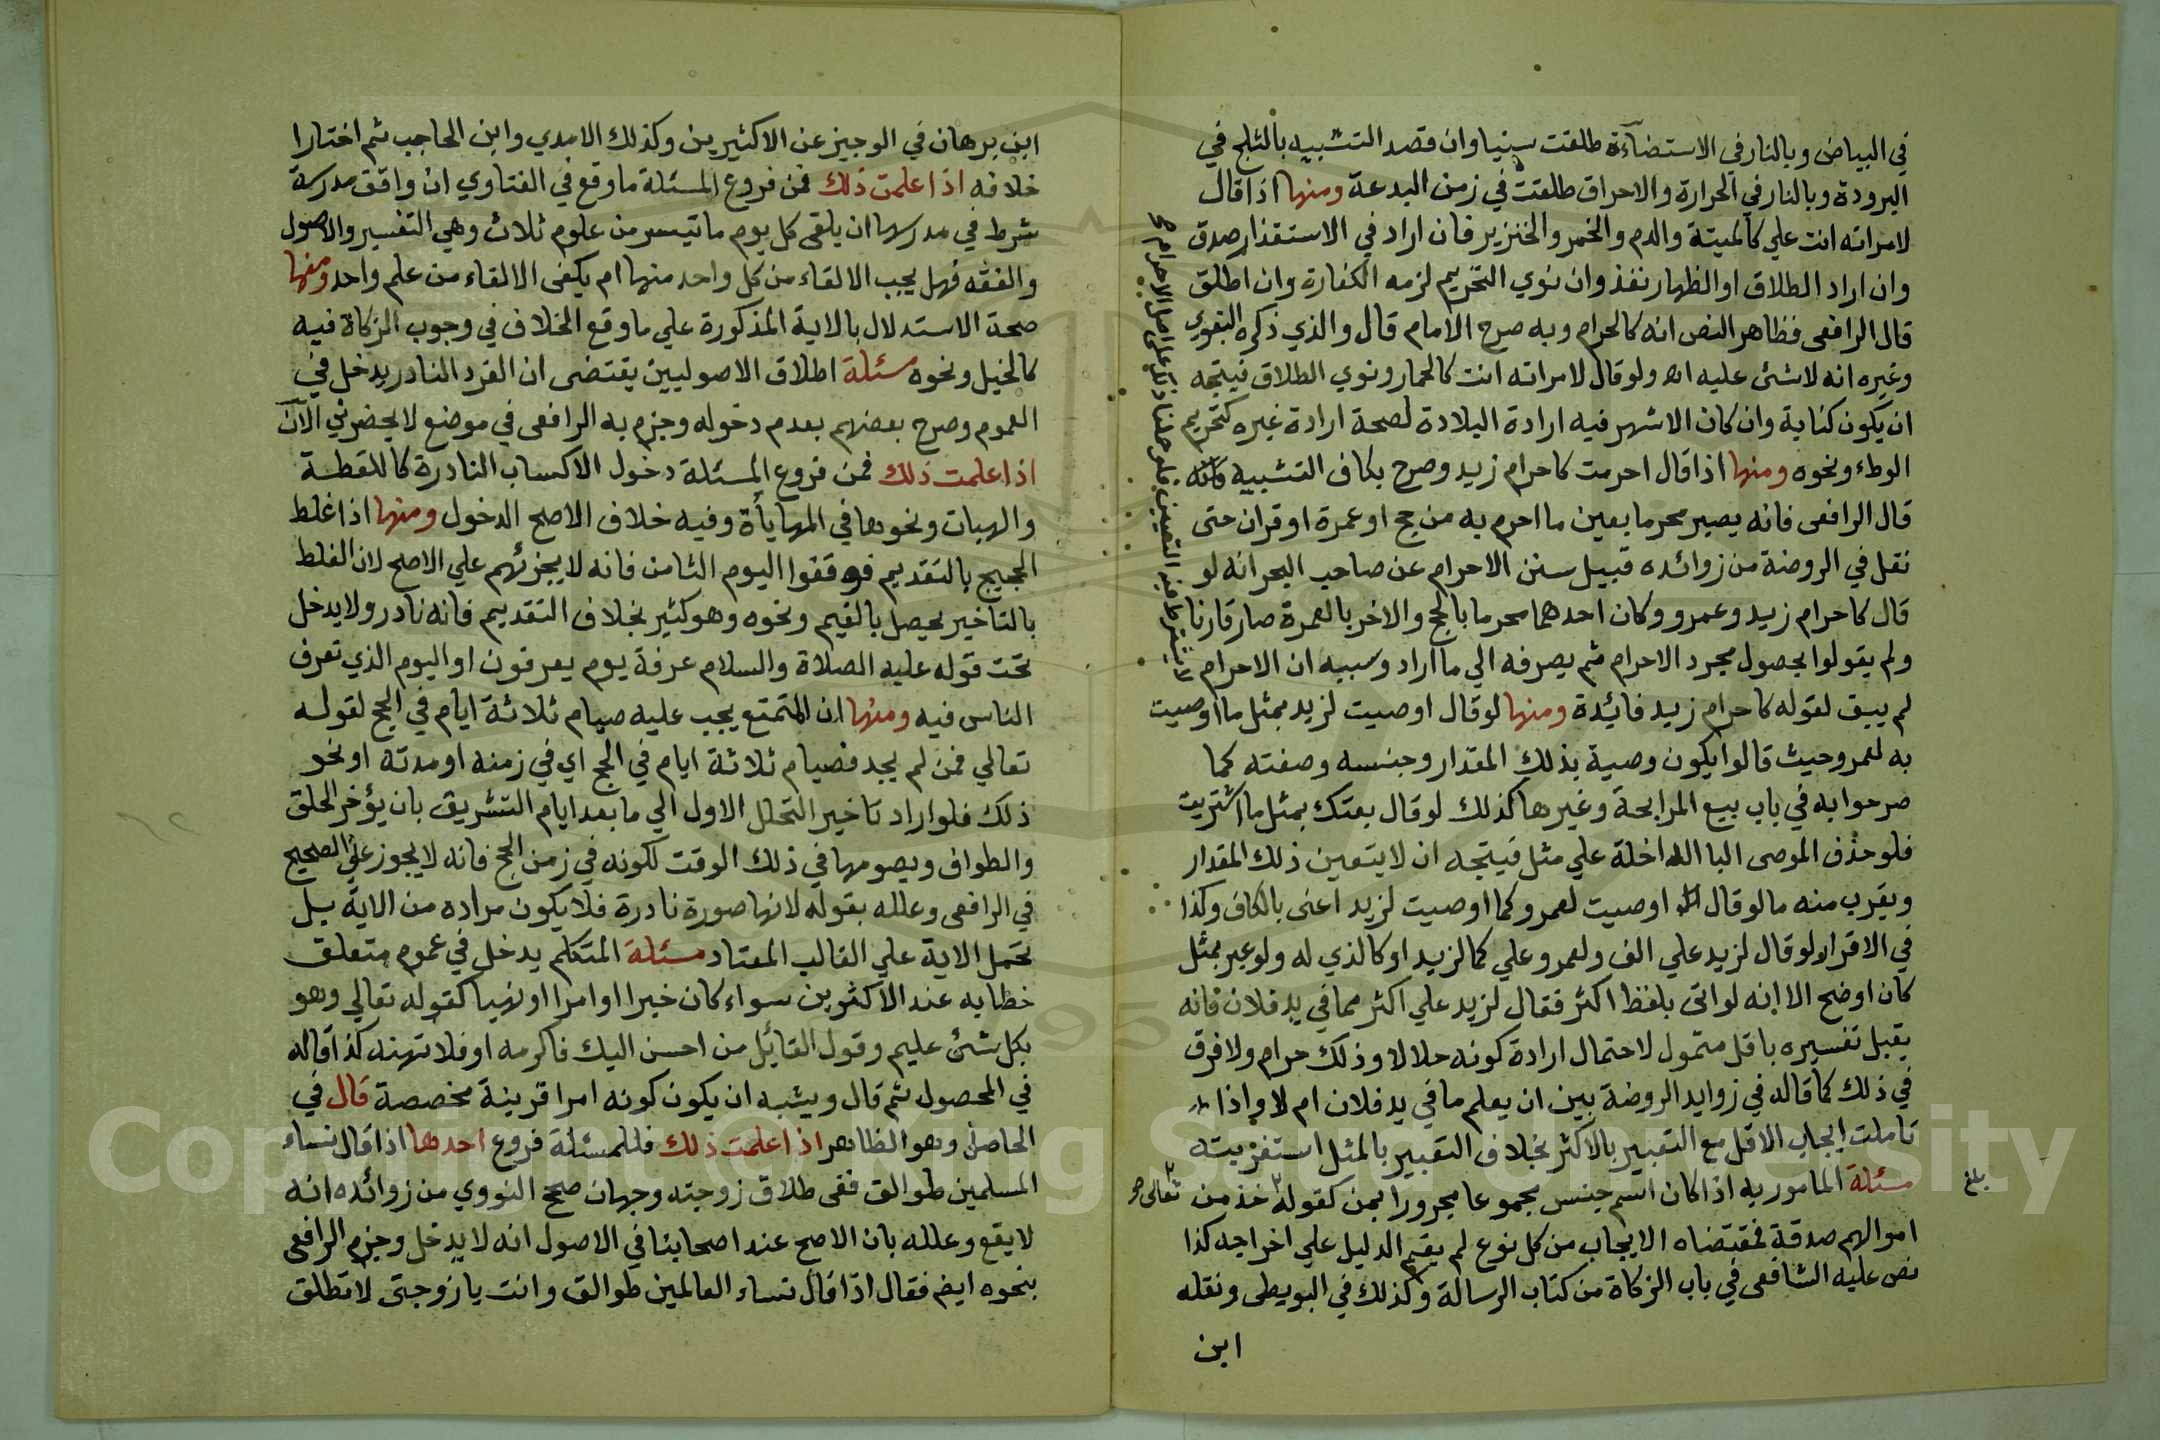 في البياض وبالنار في الاستضاءة طلقت سنيا وان قصد التشبيه بالثلج في
البرودة وبالنار في الحرارة والاحراق طلقت في زمن البدعة ومنها اذا قال
لامراته انت علي كالميتة والدم والخمر والخنزير فان اراد في الاستقذار صدق
وان اراد الطلاق او الظهار نفذ وان نوي التحريم لزمه الكفارة وان اطلق
قال الرافعى فظاهر النص انه كالحرام وبه صرح الامام قال والذي ذكره البغوي
وغيره انه لا شئ عليه اه ولو قال لامراته انت كالحمار ونوي الطلاق فيتجه
ان يكون كناية وان كان الاشهر فيه ارادة البلادة لصحة ارادة غيره كتحريم
الوطء ونحوه ومنها اذا قال احرمت كاحرام زيد وصرح بكاف التشبيه
قال الرافعى فانه يصير محرما بعين ما احرم به من حج او عمرة او قران حتى
نقل في الروضة من زوائده قبيل سنن الاحرام عن صاحب البحر انه لو
قال كاحرام زيد وعمرو وكان احدهما محرما بالحج والاخر بالعمرة صار قارنا
ولم يقولوا بحصول مجرد الاحرام ثم يصرفه الي ما اراد وسببه ان الاحرام
لا يشترط فيه التعيين فلو حملنا ذلك على اصل الاحرام
لم يبق لقوله كاحرام زيد فائدة ومنها لو قال اوصيت لزيد بمثل ما اوصيت
به لعمرو حيث قالوا يكون وصية بذلك المقدار وجنسه وصفته كما
صرحوا به في باب بيع المرابحة وغيرها كذلك لو قال بعتك بمثل ما اشتريت
فلو حذف الموصى البا الداخلة علي مثل فيتجه ان لا يتعين ذلك المقدار
ويقرب منه ما لو قال اوصيت لعمرو كما اوصيت لزيد اعنى بالكاف وكذا
في الاقرار لو قال لزيد علي الف ولعمرو علي كما لزيد او كالذي له ولو عبر بمثل
كان اوضح الا انه لو اتى بلفظ اكثر فقال لزيد علي اكثر مما في يد فلان فانه
يقبل تفسيره باقل متمول لاحتمال ارادة كونه حلالا وذلك حرام ولا فرق
في ذلك كما قاله في زوايد الروضة بين ان يعلم ما في يد فلان ام لا واذا
تاملت ايجاب الاقل مع التعبير بالاكثر بخلاف التعبير بالمثل استغربته
بلغ
مسئلة المامور به اذا كان اسم جنس مجموعا مجرورا بمن كقوله تعالى خذ من
اموالهم صدقة فمقتضاه الايجاب من كل نوع لم يقم الدليل علي اخراجه كذا
نص عليه الشافعى في باب الزكاة من كتاب الرسالة وكذلك في البويطى ونقله
ابن
ابن برهان في الوجيز عن الاكثيرين وكذلك الامدي وابن الحاجب ثم اختارا
خلافه اذا علمت ذلك فمن فروع المسئلة ما وقع في الفتاوي ان واقف مدرسة
شرط في مدرسها ان يلقى كل يوم ما تيسر من علوم ثلاث وهي التفسير والاصول
والفقه فهل يجب الالقاء من كل واحد منها ام يكفى الالقاء من علم واحد ومنها
صحة الاستدلال بالاية المذكورة علي ما وقع الخلاف في وجوب الزكاة فيه
كالخيل ونحوه مسئلة اطلاق الاصوليين يقتضى ان الفرد النادر يدخل في
العموم وصرح بعضهم بعدم دخوله وجزم به الرافعى في موضع لا يحضرني الآن
اذا علمت ذلك فمن فروع المسئلة دخول الاكساب النادرة كاللقطة
والهبات ونحوها في المهايأة وفيه خلاف الاصح الدخول ومنها اذا غلط
الحجيج بالتقديم فوقفوا اليوم الثامن فانه لا يجزئهم علي الاصح لان الغلط
بالتاخير يحصل بالغيم ونحوه وهو كثير بخلاف التقديم فانه نادر ولا يدخل
تحت قوله عليه الصلاة والسلام عرفة يوم يعرفون او اليوم الذي تعرف
الناس فيه ومنها ان المتمتع يجب عليه صيام ثلاثة ايام في الحج لقوله
تعالي فمن لم يجد فصيام ثلاثة ايام في الحج اي في زمنه او مدته او نحو
ذلك فلو اراد تاخير التحلل الاول الي ما بعد ايام التشريق بان يؤخر الحلق
والطواف ويصومها في ذلك الوقت لكونه في زمن الحج فانه لا يجوز علي الصحيح
في الرافعى وعلله بقوله لانها صورة نادرة فلا يكون مراده من الاية بل
تحمل الاية علي الغالب المعتاد مسئلة المتكلم يدخل في عموم متعلق
خطابه عند الاكثرين سواء كان خبرا او امرا او نهيا كقوله تعالي وهو
بكل شئ عليم وقول القائل من احسن اليك فاكرمه او فلا تهنه كذا قاله
في المحصول ثم قال ويشبه ان يكون كونه امرا قرينة مخصصة قال في
الحاصل وهو الظاهر اذا علمت ذلك فللمسئلة فروع احدها اذا قال نساء
المسلمين طوالق ففى طلاق زوجته وجهان صحح النووي من زوائده انه
لا يقع وعلله بان الاصح عند اصحابنا في الاصول انه لا يدخل وجزم الرافعى
بنحوه ايضا فقال اذا قال نساء العالمين طوالق وانت يا زوجتى لا تطلق